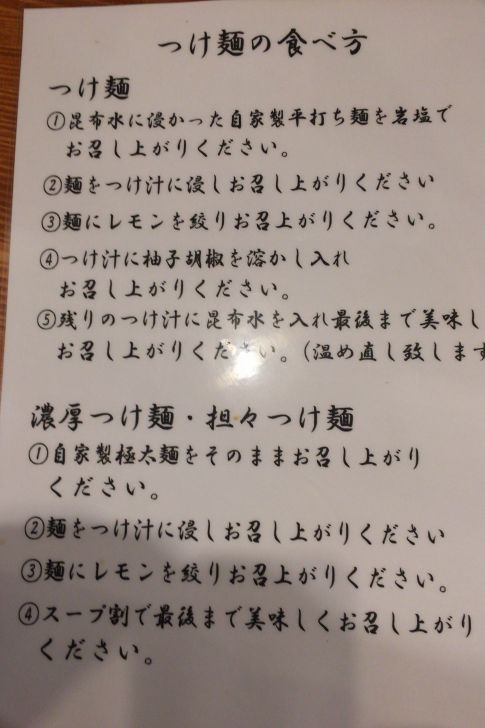 つけ麺の食べ方
つけ麺
①昆布水に浸かった自家製平打ち麺を岩塩で
お召し上がりください。
②麺をつけ汁に浸しお召し上がりください
③麺にレモンを絞りお召上がりください。
④つけ汁に柚子胡椒を溶かし入れ
お召し上がりください。
⑤残りのつけ汁に昆布水を入れ最後まで美味し
お召し上がりください。(温め直し致します
濃厚つけ麺・担々つけ麺
①自家製極太麺をそのままお召し上がり
ください。
②麺をつけ汁に浸しお召し上がりください
③麺にレモンを絞りお召上がりください。
④スープ割で最後まで美味しくお召し上がり
ください。